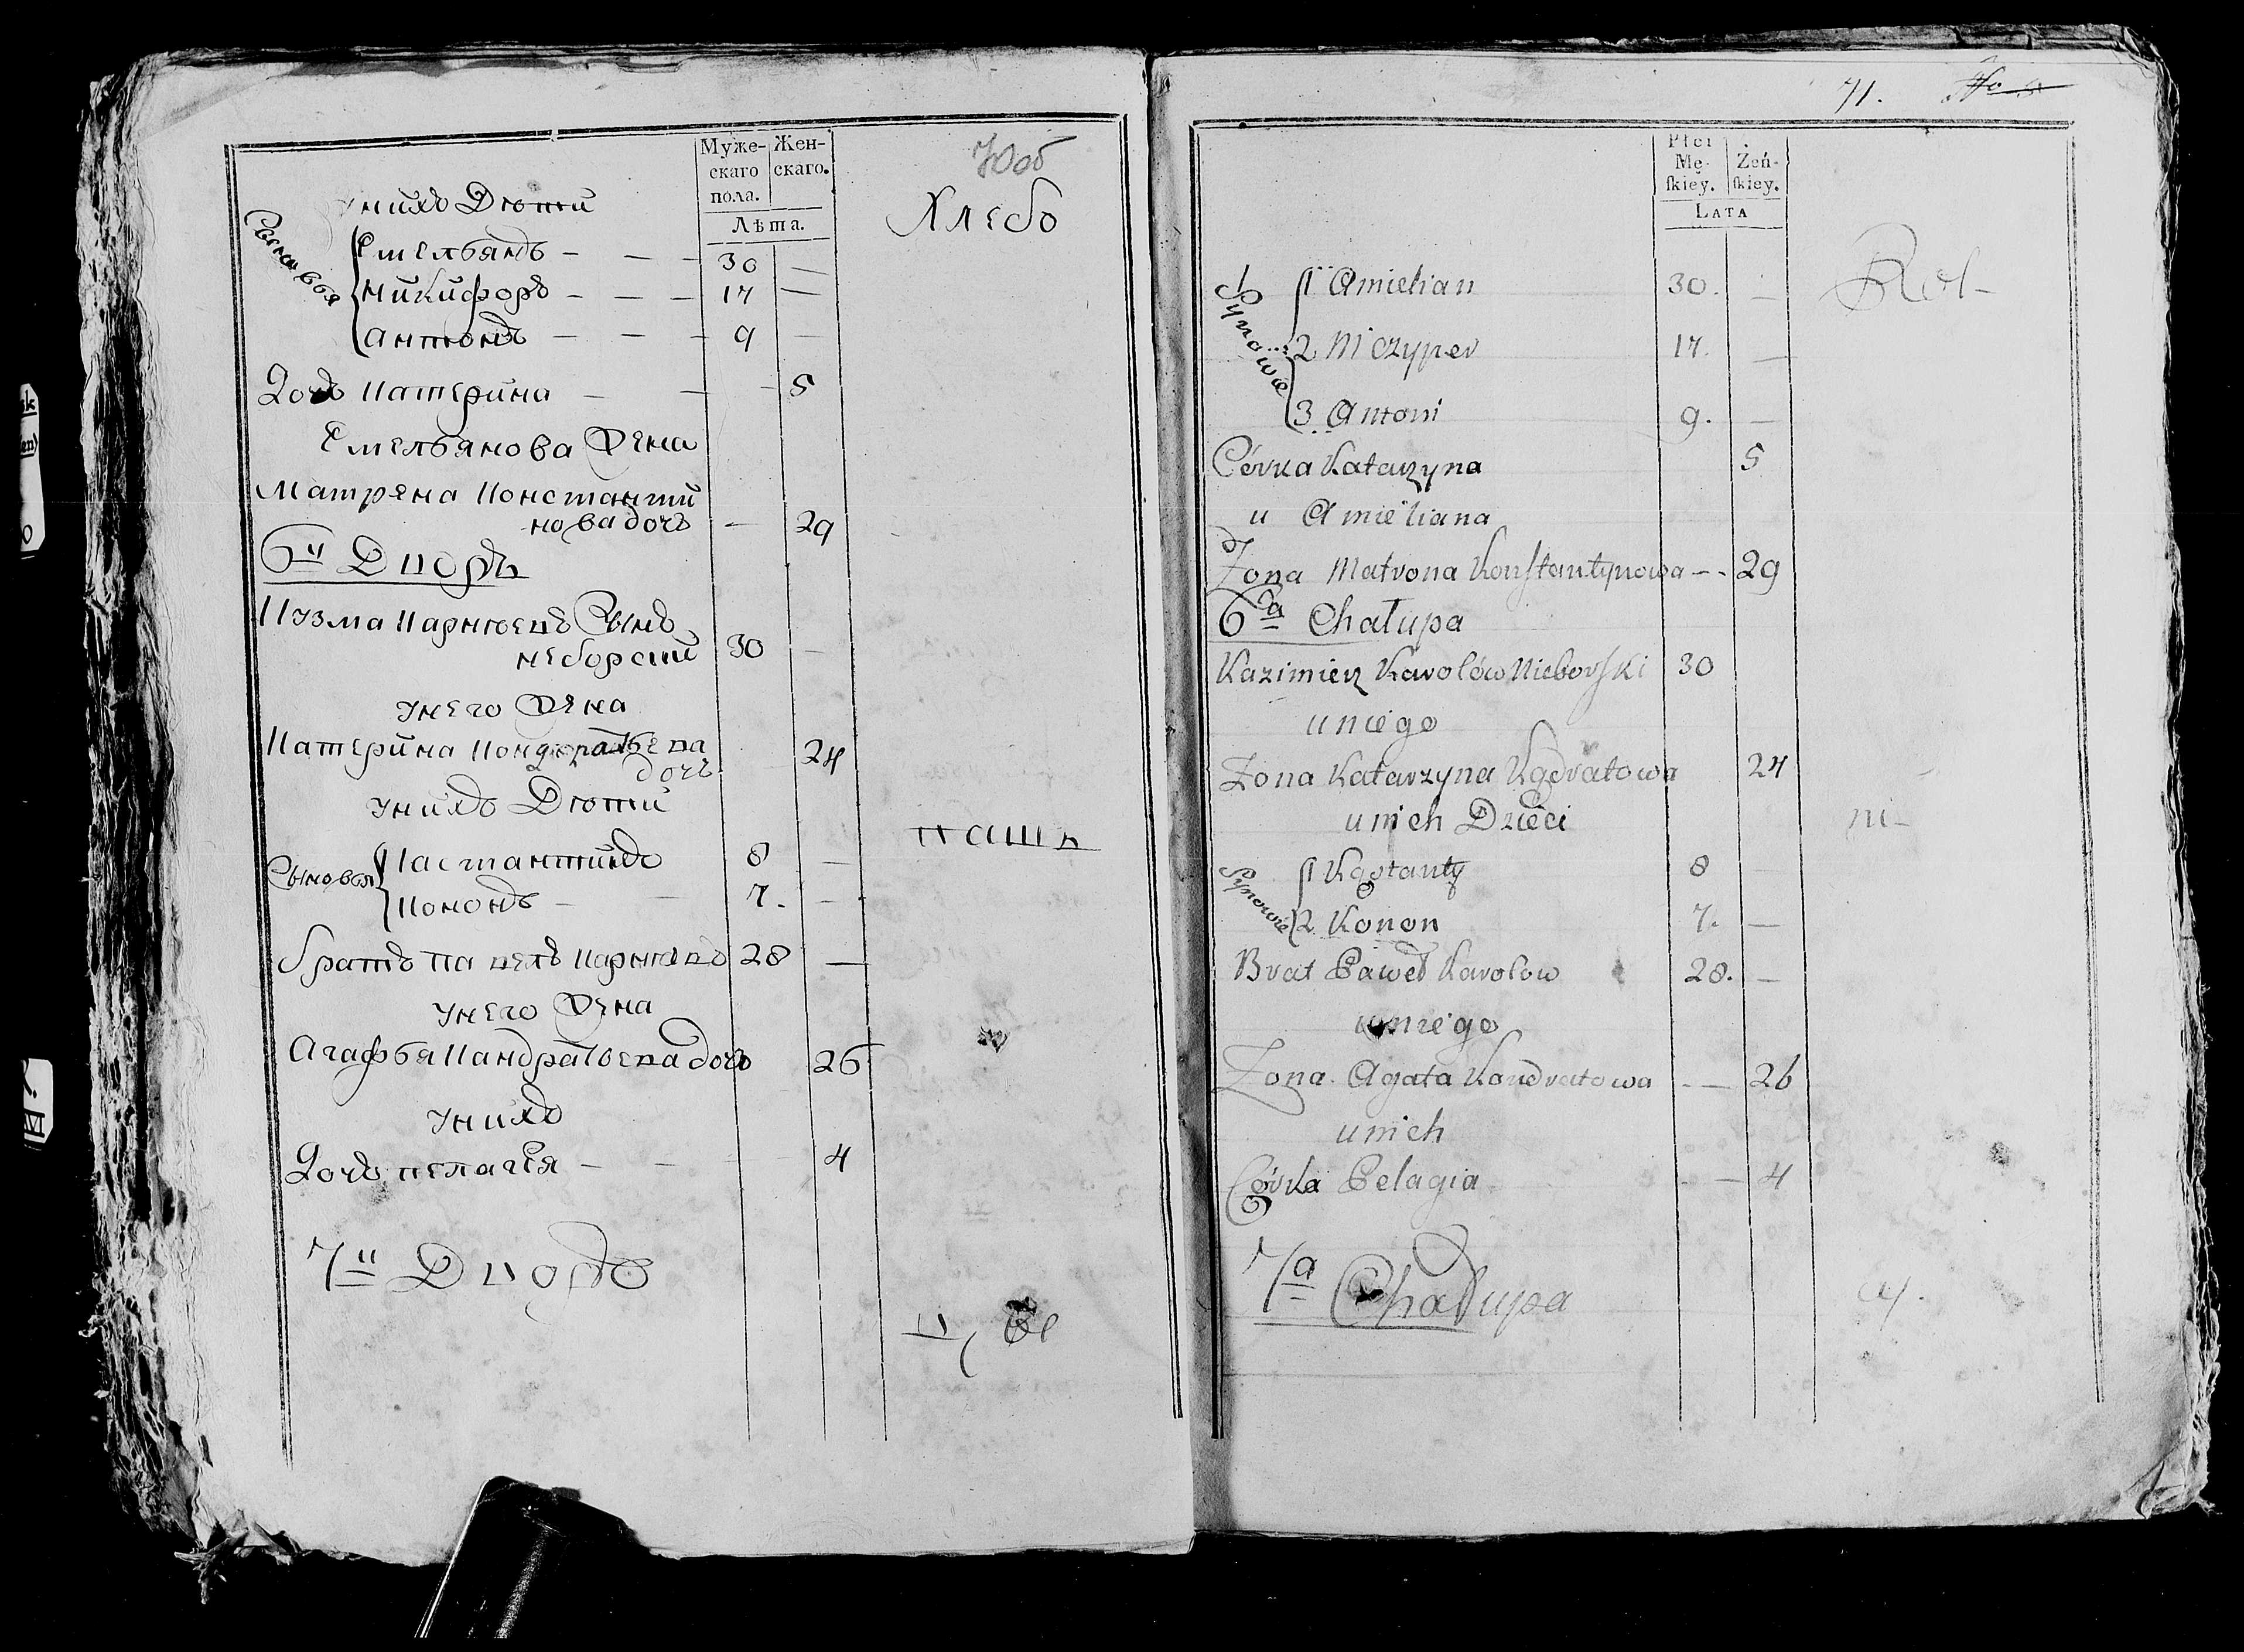 70об
Муже-
скаго
пола.
Жен-
скаго.
Лѣта.
Хлебо
унихъ Дѣти
Сыновья
Емельянъ - - - 30 —
Никифоръ - - - 17 —
Антонъ - - - 9 —
Дочь Катерина - - - 5
Емельянова Жена
Матрена Константи
нова дочь - 29
6й Дворъ
Кузма Карнѣевъ Сынъ
неборский 30 —
унего Жена
Катерина Кондратьева
дочь 24
унихъ Дѣти
паш
Сыновья
Кастантинъ 8 —
Кононъ - - 7. —
братъ Павелъ Карнѣевъ 28 —
унего Жена
Агафья Кандратьева дочь 26
унихъ
Дочь пелагея - - - 4
7й Дворъ
71.
Płci
Mę-
skiey.
Żeń-
skiey.
LATA
Rol-
Synowie
1 Amielian 30. —
2 Niczyper 17. —
3 Antoni 9. —
Córka Katarzyna 5
u Amieliana
Żona Matrona Konstantynowa - - 29
6ta Chałupa
Kazimierz Karolów Nieborski 30
uniego
Żona Katarzyna Kądratowa 24
unich Dzieci
ni-
Synowie
1 Kąstanty 8 —
2 Konon 7. —
Brat Paweł Karolow 28. —
uniego
Żona Agata Kondratowa - — 26
unich
Córka Pelagia - — 4
7a Chałupa
cy.